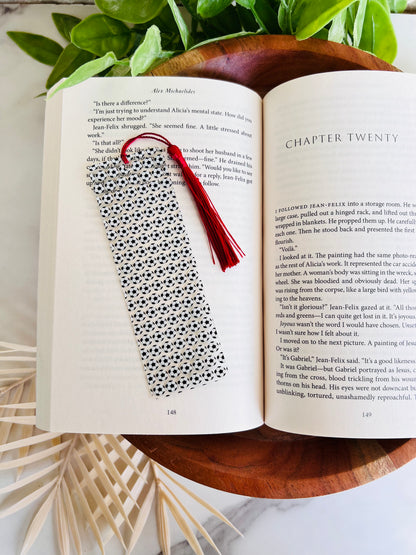 Alex Michaelides
"Is there a difference?"
"I'm just trying to understand Alicia's mental state. How did you
experience her mood?"
Jean-Felix shrugged. "She seemed fine. A little stressed about
work."
"Is that all?"
to shoot her husband in a
few
seemed—fine." He drained his
"Would you like to see
for a reply, Jean-Felix
of following.
148
CHAPTER TWENTY
I FOLLOWED JEAN-FELIX into a storage room. He
large case, pulled out a hinged rack, and lifted out
wrapped in blankets. He propped them up. He carefully
each one. Then he stood back and presented the first
flourish.
"Voilà."
I looked at it. The painting had the same photo-rea
as the rest of Alicia's work. It represented the car accide
her mother. A woman's body was sitting in the wreck,
wheel. She was bloodied and obviously dead. Her
was rising from the corpse, like a large bird with yellow
to the heavens.
"Isn't it glorious?" Jean-Felix gazed at it. "All tho
reds and greens—I can quite get lost in it. It's joyous.
Joyous wasn't the word I would have chosen. Unsettl
wasn't sure how I felt about it.
I moved on to the next picture. A painting of Jesus
Or was it?
"It's Gabriel," Jean-Felix said. "It's a good likeness.
It was Gabriel—but Gabriel portrayed as Jesus, cruci
ing from the cross, blood trickling from his wound
thorns on his head. His eyes were not downcast bu
unblinking, tortured, unashamedly reproachful. Th
149